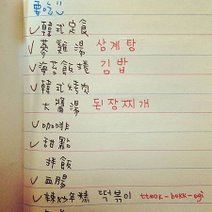 要吃!!
✓韓式定食
✓蔘雞湯 삼계탕
✓海苔飯捲 김밥
✓韓式燒烤
大醬湯 된장찌개
✓咖啡
✓甜點
拌飯
✓血腸
✓辣炒年糕 떡볶이 tteok-bokk-ogi